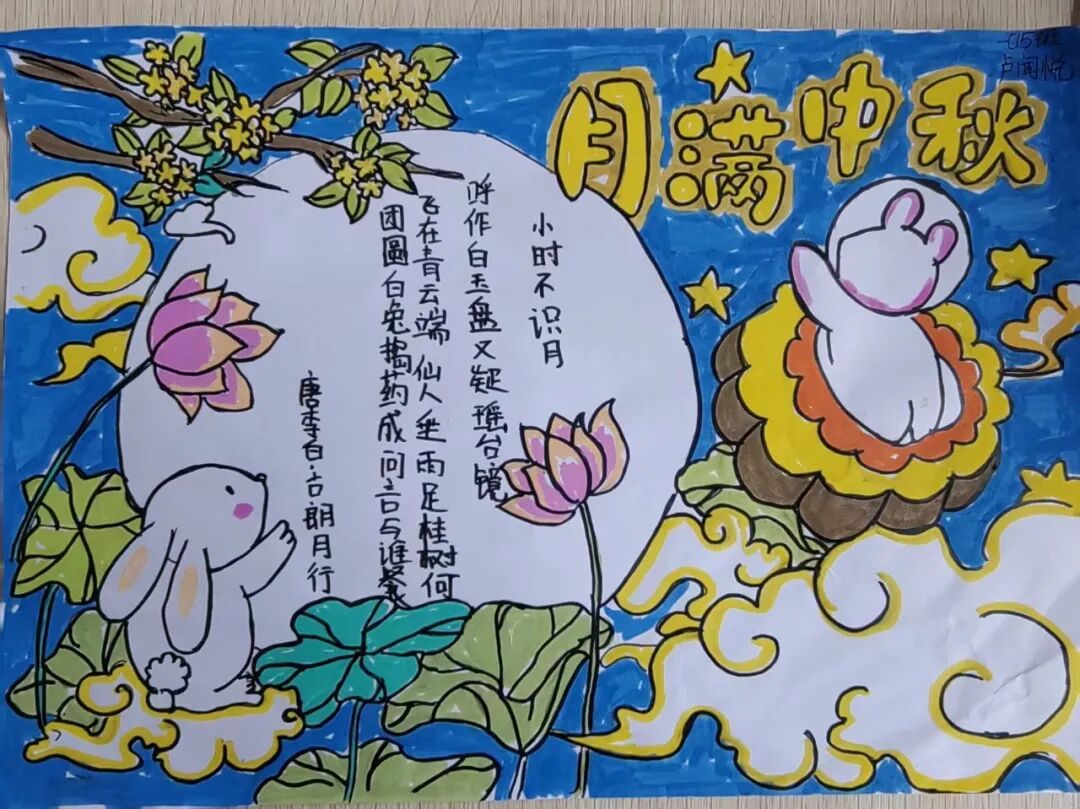 月满中秋
卢闻悦
小时不识月
呼作白玉盘又疑瑶台镜
飞在青云端仙人垂雨足桂树何
团圓白兔捣药成问言与谁餐
唐李白·古朗月行